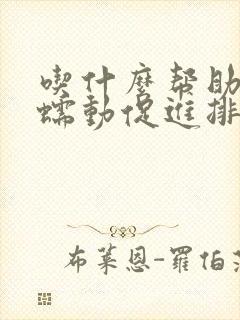 喫什麼幫助
蠕動促進排
布萊恩-羅伯